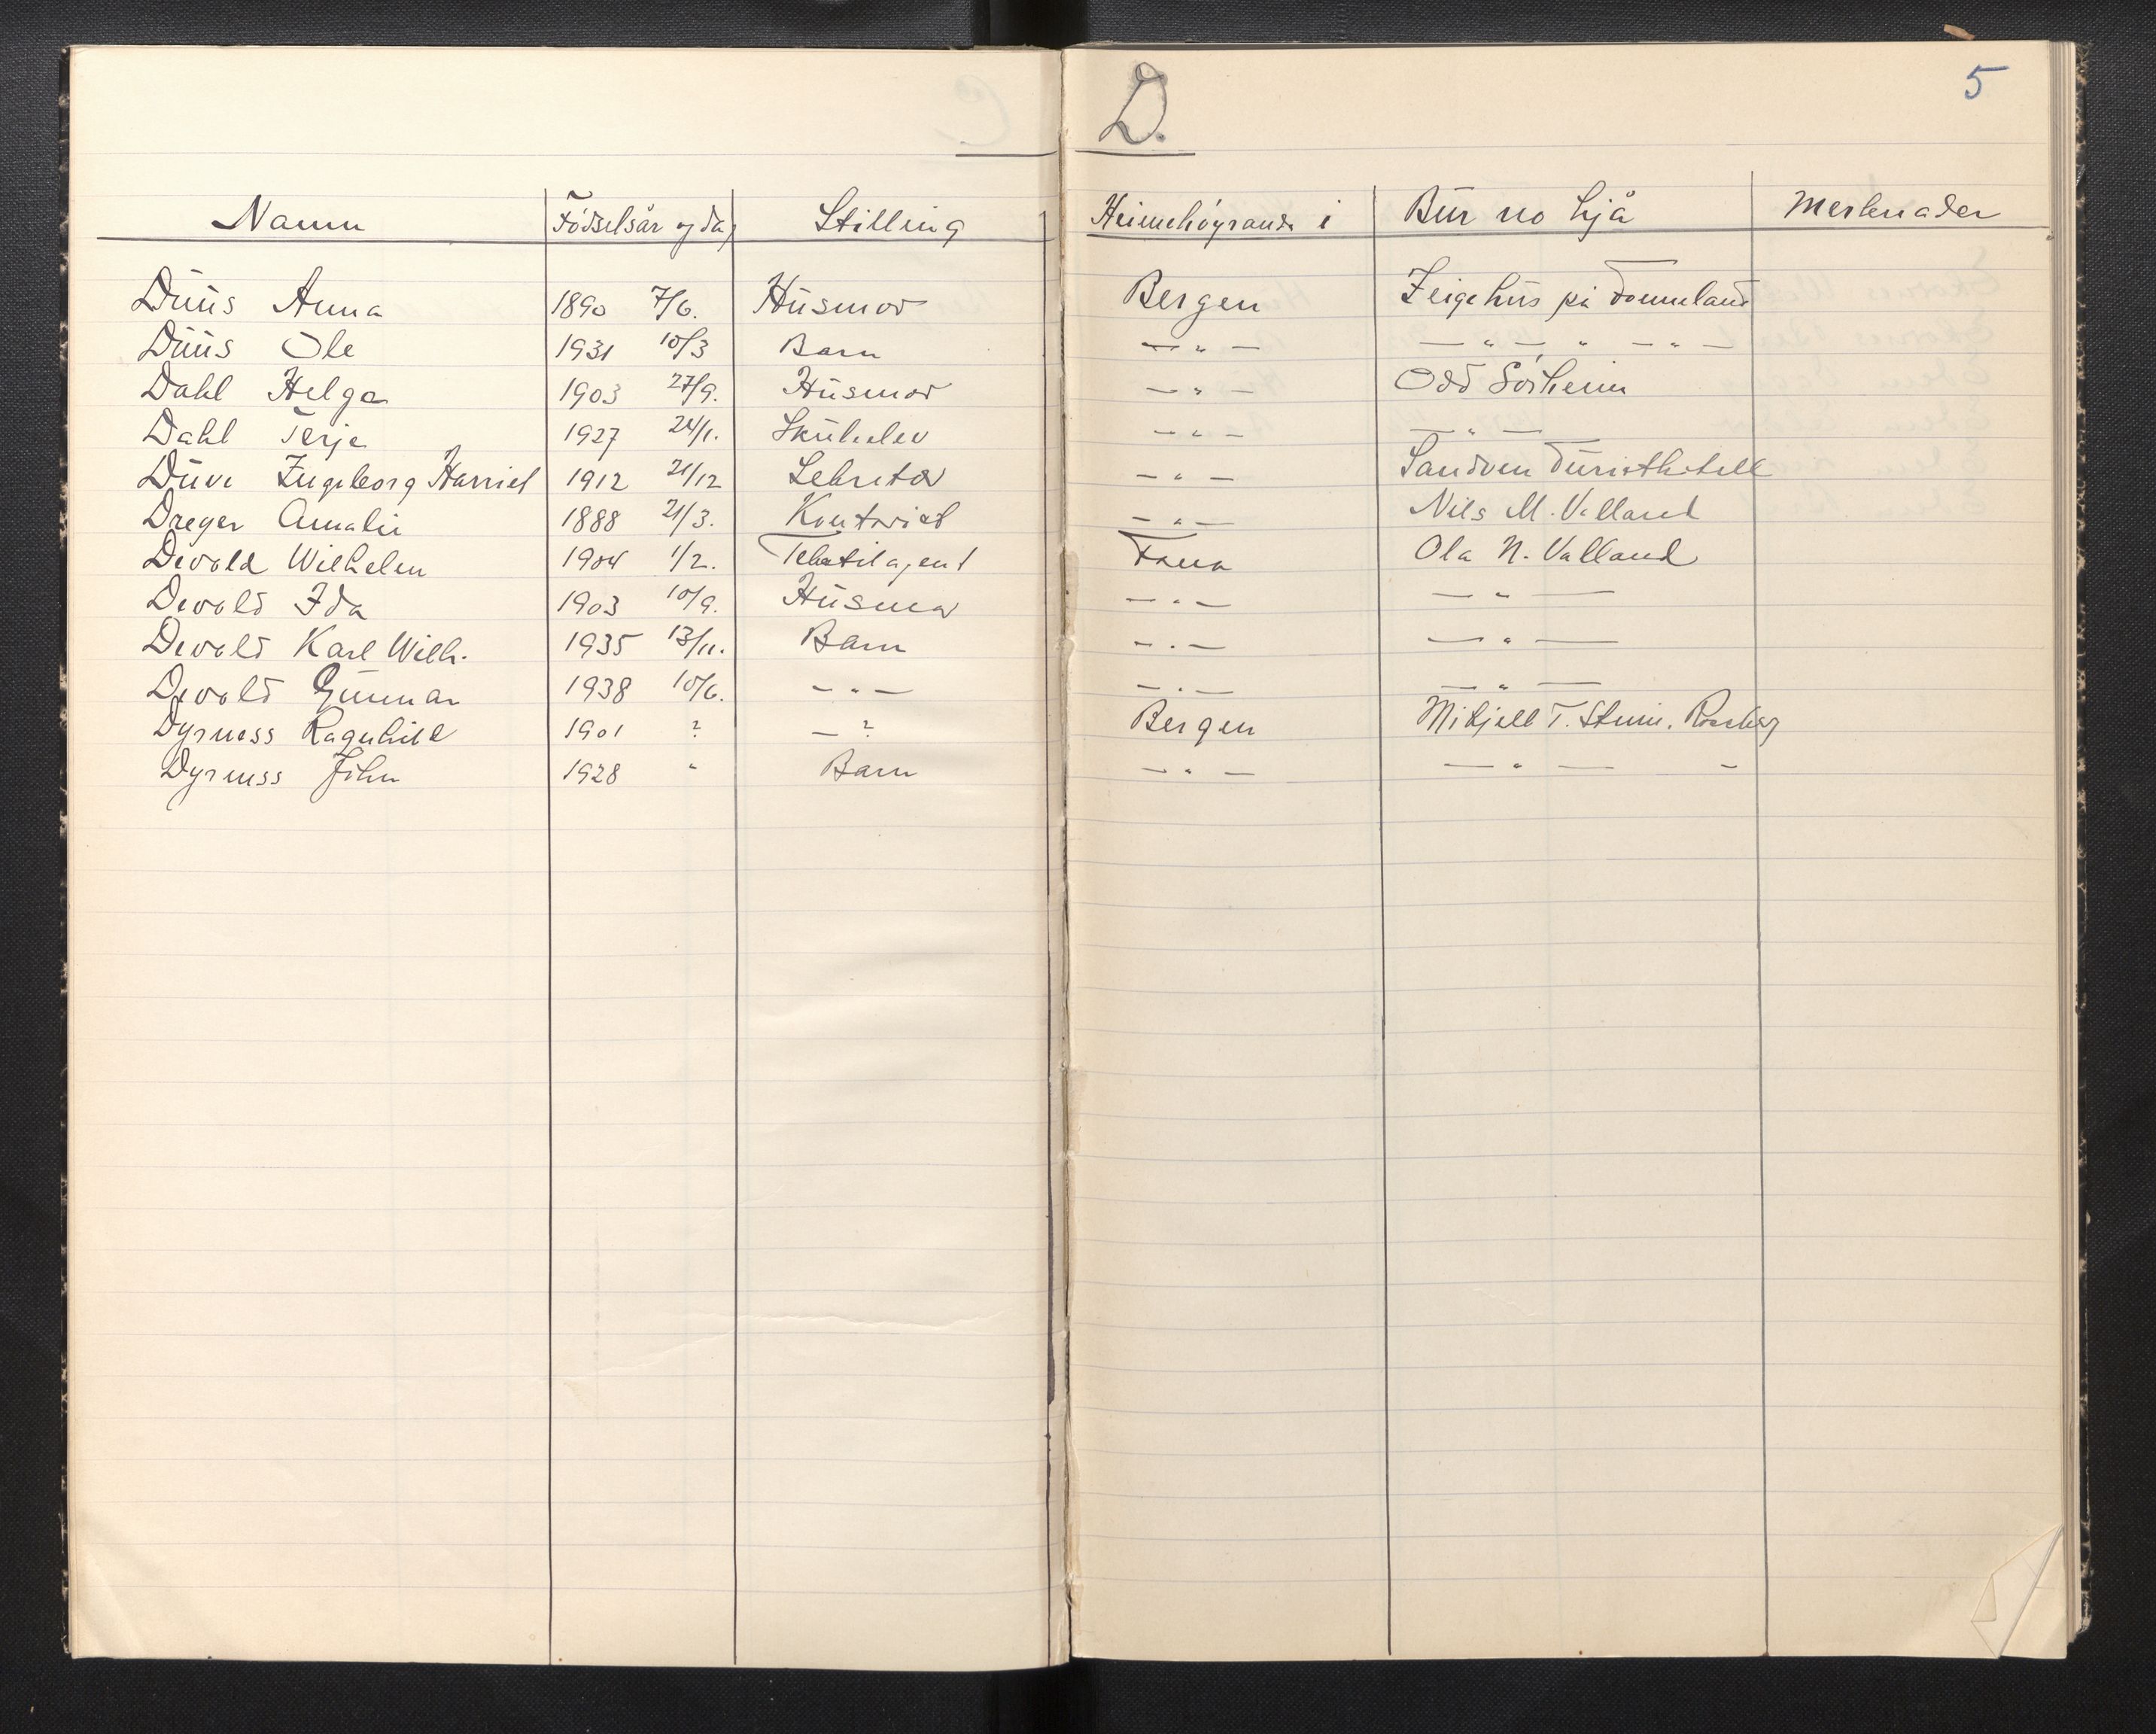 D.
5
Namn Födselsår og dag Stilling Heimehöyrande i Bur no hjå Merknader
Duus Anna 1890 7/6. Husmor Bergen Leigehus på Tommeland
Duus Ole 1931 10/3 Barn — " — — " — " — " —
Dahl Helga 1903 27/9. Husmor — " — Odd Sörheim
Dahl Terje 1927 24/1. Skuleelev — " — — " —
Duve Ingeborg Harriet 1912 21/12 Sekretær — " — Sandven Turisthotell
Dreyer Amalie 1888 21/3. Kontorist — " — Nils M. Valland
Devold Wilhelm 1904 1/2. Tekstilagent Fana Ola N. Valland
Devold Ida 1903 10/9. Husmor — " — — " —
Devold Karl Wilh. 1935 13/11. Barn — " — — " —
Devold Gunnar 1938 10/6. — " — — " — — " —
Dyrness Ragnhild 1901 ? — ? Bergen Mikjell T. Steine.
Dyrness John 1928 " Barn — " — — " — -